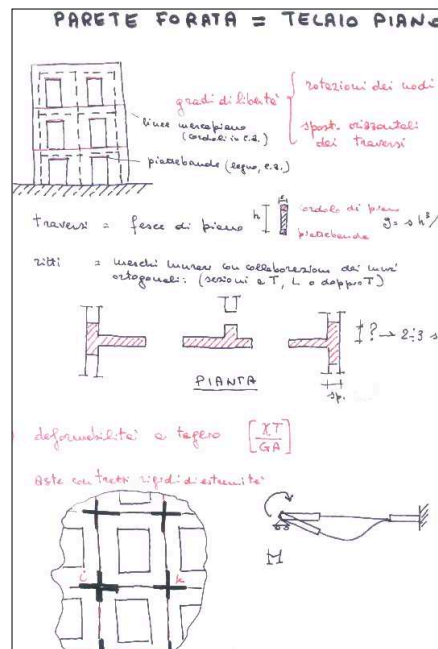 PARETE FORATA = TELAIO PIANO
gradi di libertà
rotazioni dei nodi
spost. orizzontali
dei traversi
linee mezzo piano
(cordoli in c.a.)
piattabande (legno, c.a.)
s
traversi = fasce di piano
h
cordolo di piano
piattabande
J = s h³/
ritti = maschi murari con collaborazione dei muri
ortogonali: (sezioni a T, L o doppio T)
? → 2÷3 s
PIANTA
sp.
deformabilità a taglio [χT
GA]
aste con tratti rigidi di estremità
i
k
M